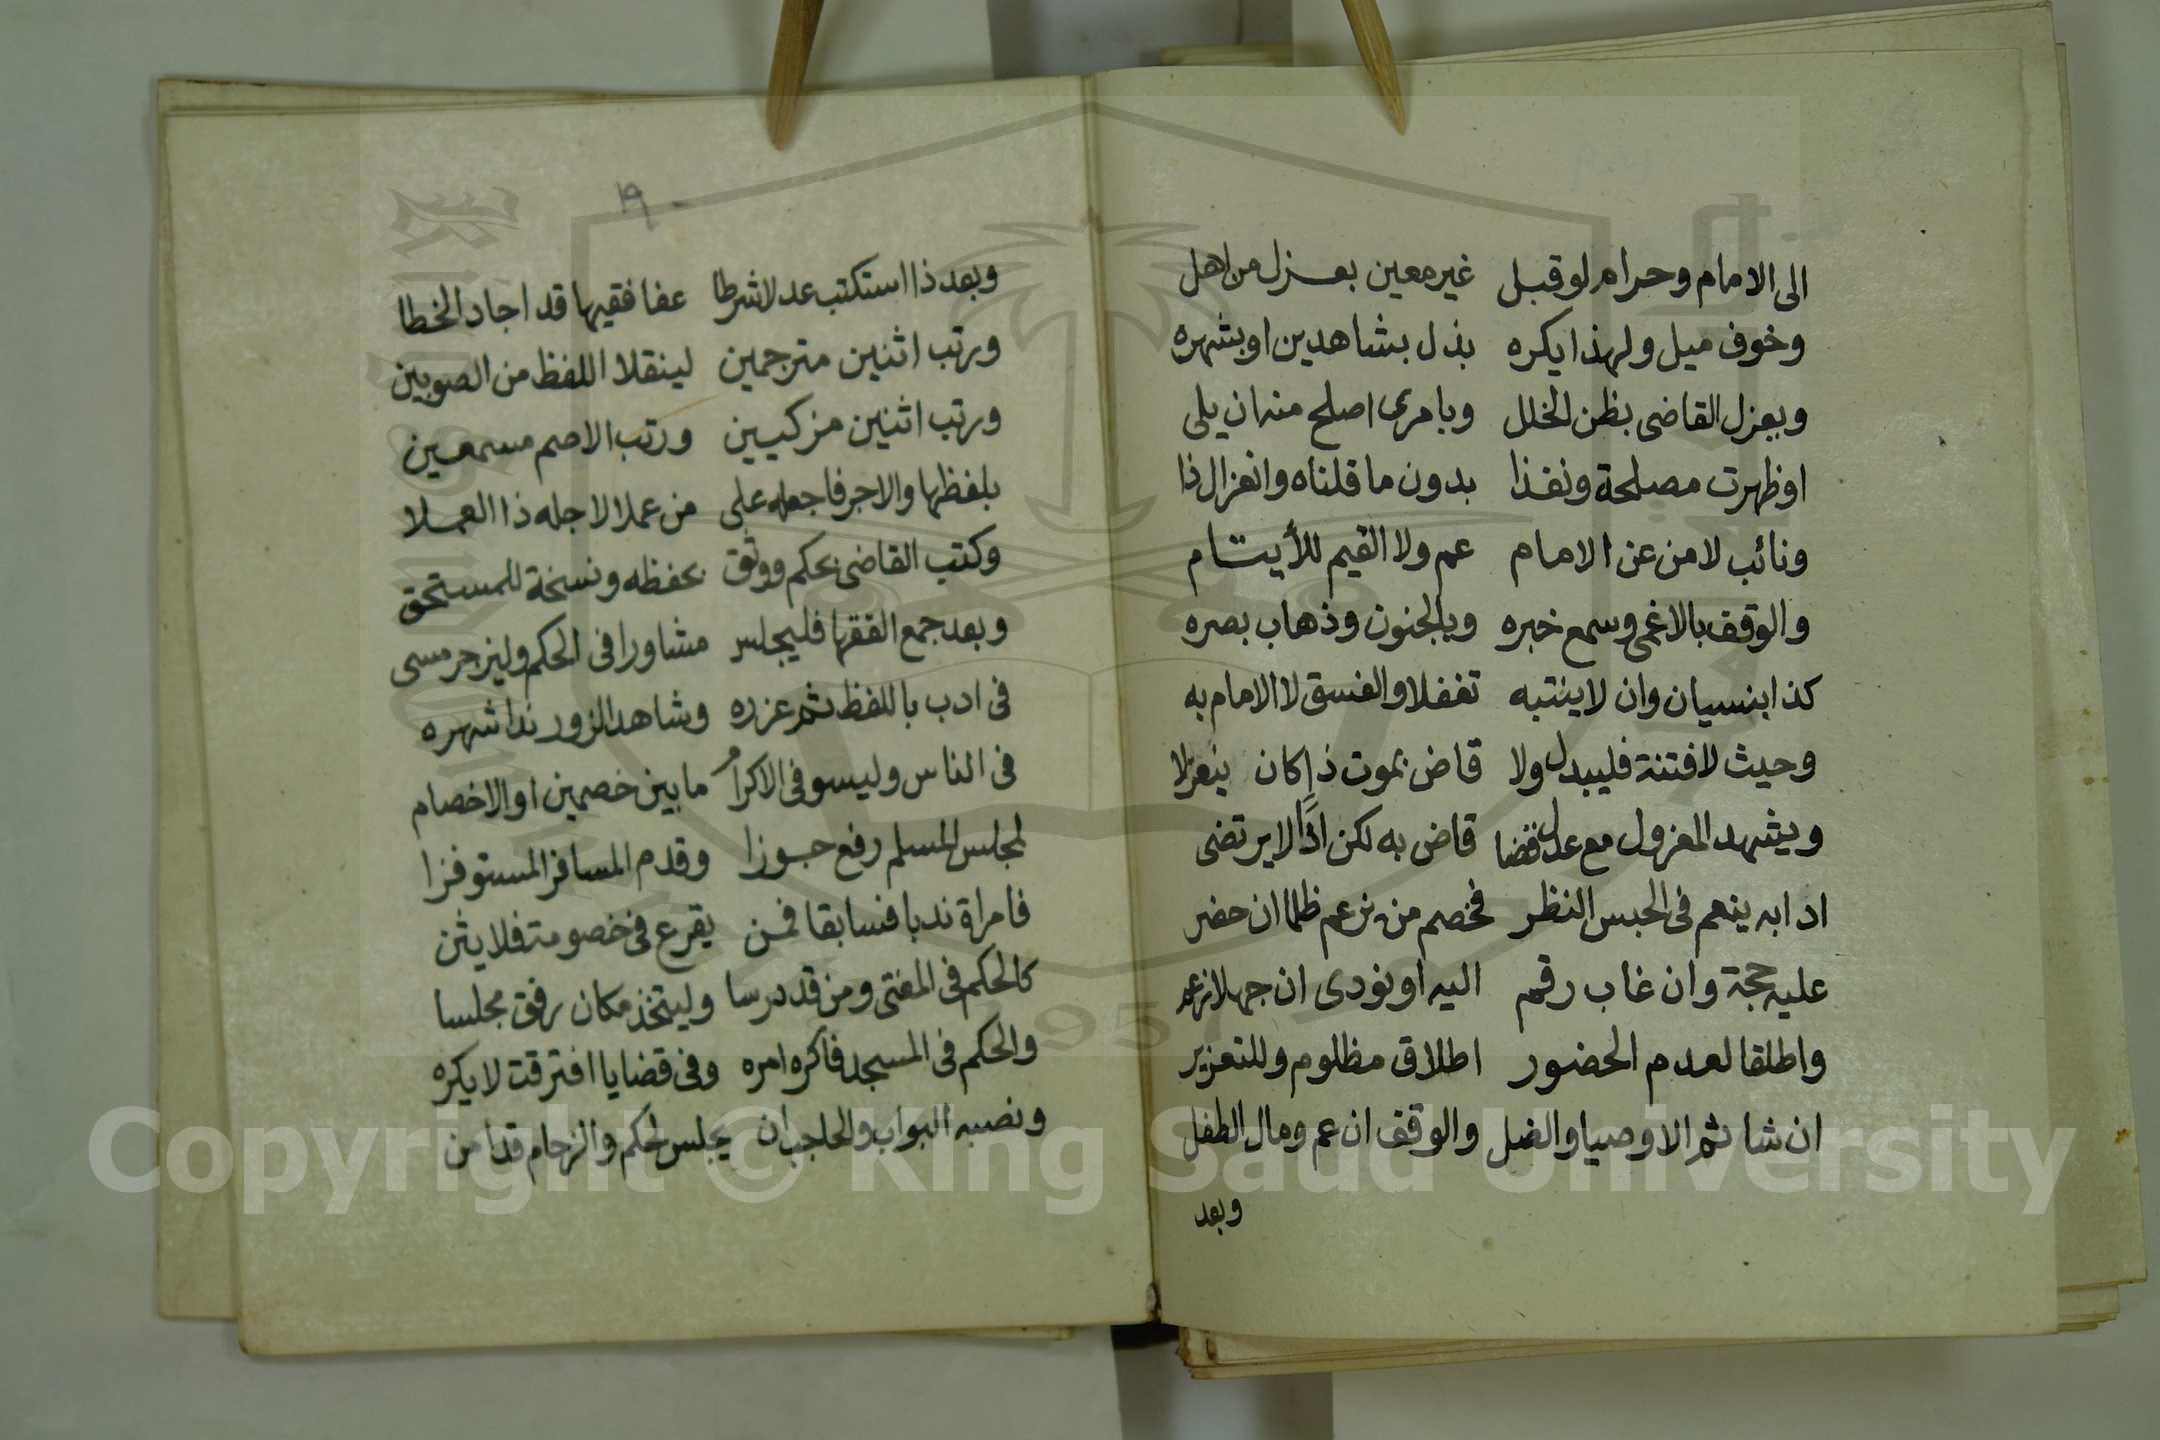 الى الامام وحرام لو قبل غير معين بعزل من اهل
وخوف ميل ولهذا يكره بذل بشاهدين او بشهره
وبعزل القاضى بظن الخلل وبامرى اصلح منه ان يلى
او ظهرت مصلحة ونفذا بدون ما قلناه وانعزال ذا
ونائب لا من عن الامام عم ولا القيم للأيتام
والوقف بالاغمى وسمع خبره وبالجنون وذهاب بصره
كذا بنسيان وان لا ينتبه تغفلا والفسق لا الامام به
وحيث لا فتنة فليبدل ولا قاض بموت ذا كان ينعزلا
ويشهد المعزول مع عدل قضا قاض به لكن اذا لا يرتضى
ادابه ينعم فى الحبس النظر فخصم من زعم ظلما ان حضر
عليه حجة وان غاب رقم اليه او نودى ان جهلا زعم
واطلقا لعدم الحضور اطلاق مظلوم وللتعزير
ان شا ثم الاوصيا والضل والوقف ان عم ومال الطفل
وبعد
١٩
وبعد ذا استكتب عدلا شرطا عفا فقيها قد اجاد الخطا
ورتب اثنين مترجمين لينقلا اللفظ من الصوبين
ورتب اثنين مزكيين ورتب الاصم مسمعين
بلفظها والاجر فاجعله على من عملا لاجله ذا العملا
وكتب القاضى بحكم ووثق بحفظه ونسخة للمستحق
وبعد جمع الفقها فليجلس مشاورا فى الحكم وليزجر مسى
فى ادب باللفظ ثم عزره وشاهد الزور ندا شهره
فى الناس وليسو فى الاكرام ما بين خصمين او الاخصام
لمجلس المسلم رفع جوزا وقدم المسافر المستوفزا
فامراة ندبا فسابقا فمن يقرع فى خصومة فلا يثن
كالحكم فى المفتى ومن قد درسا وليتخذ مكان رفق مجلسا
والحكم فى المسجد فاكره امره وفى قضايا افترقت لا يكره
ونصبه البواب والحاجب ان يجلس لحكم والزحام قد امن
Copyright © King Saud University
1957